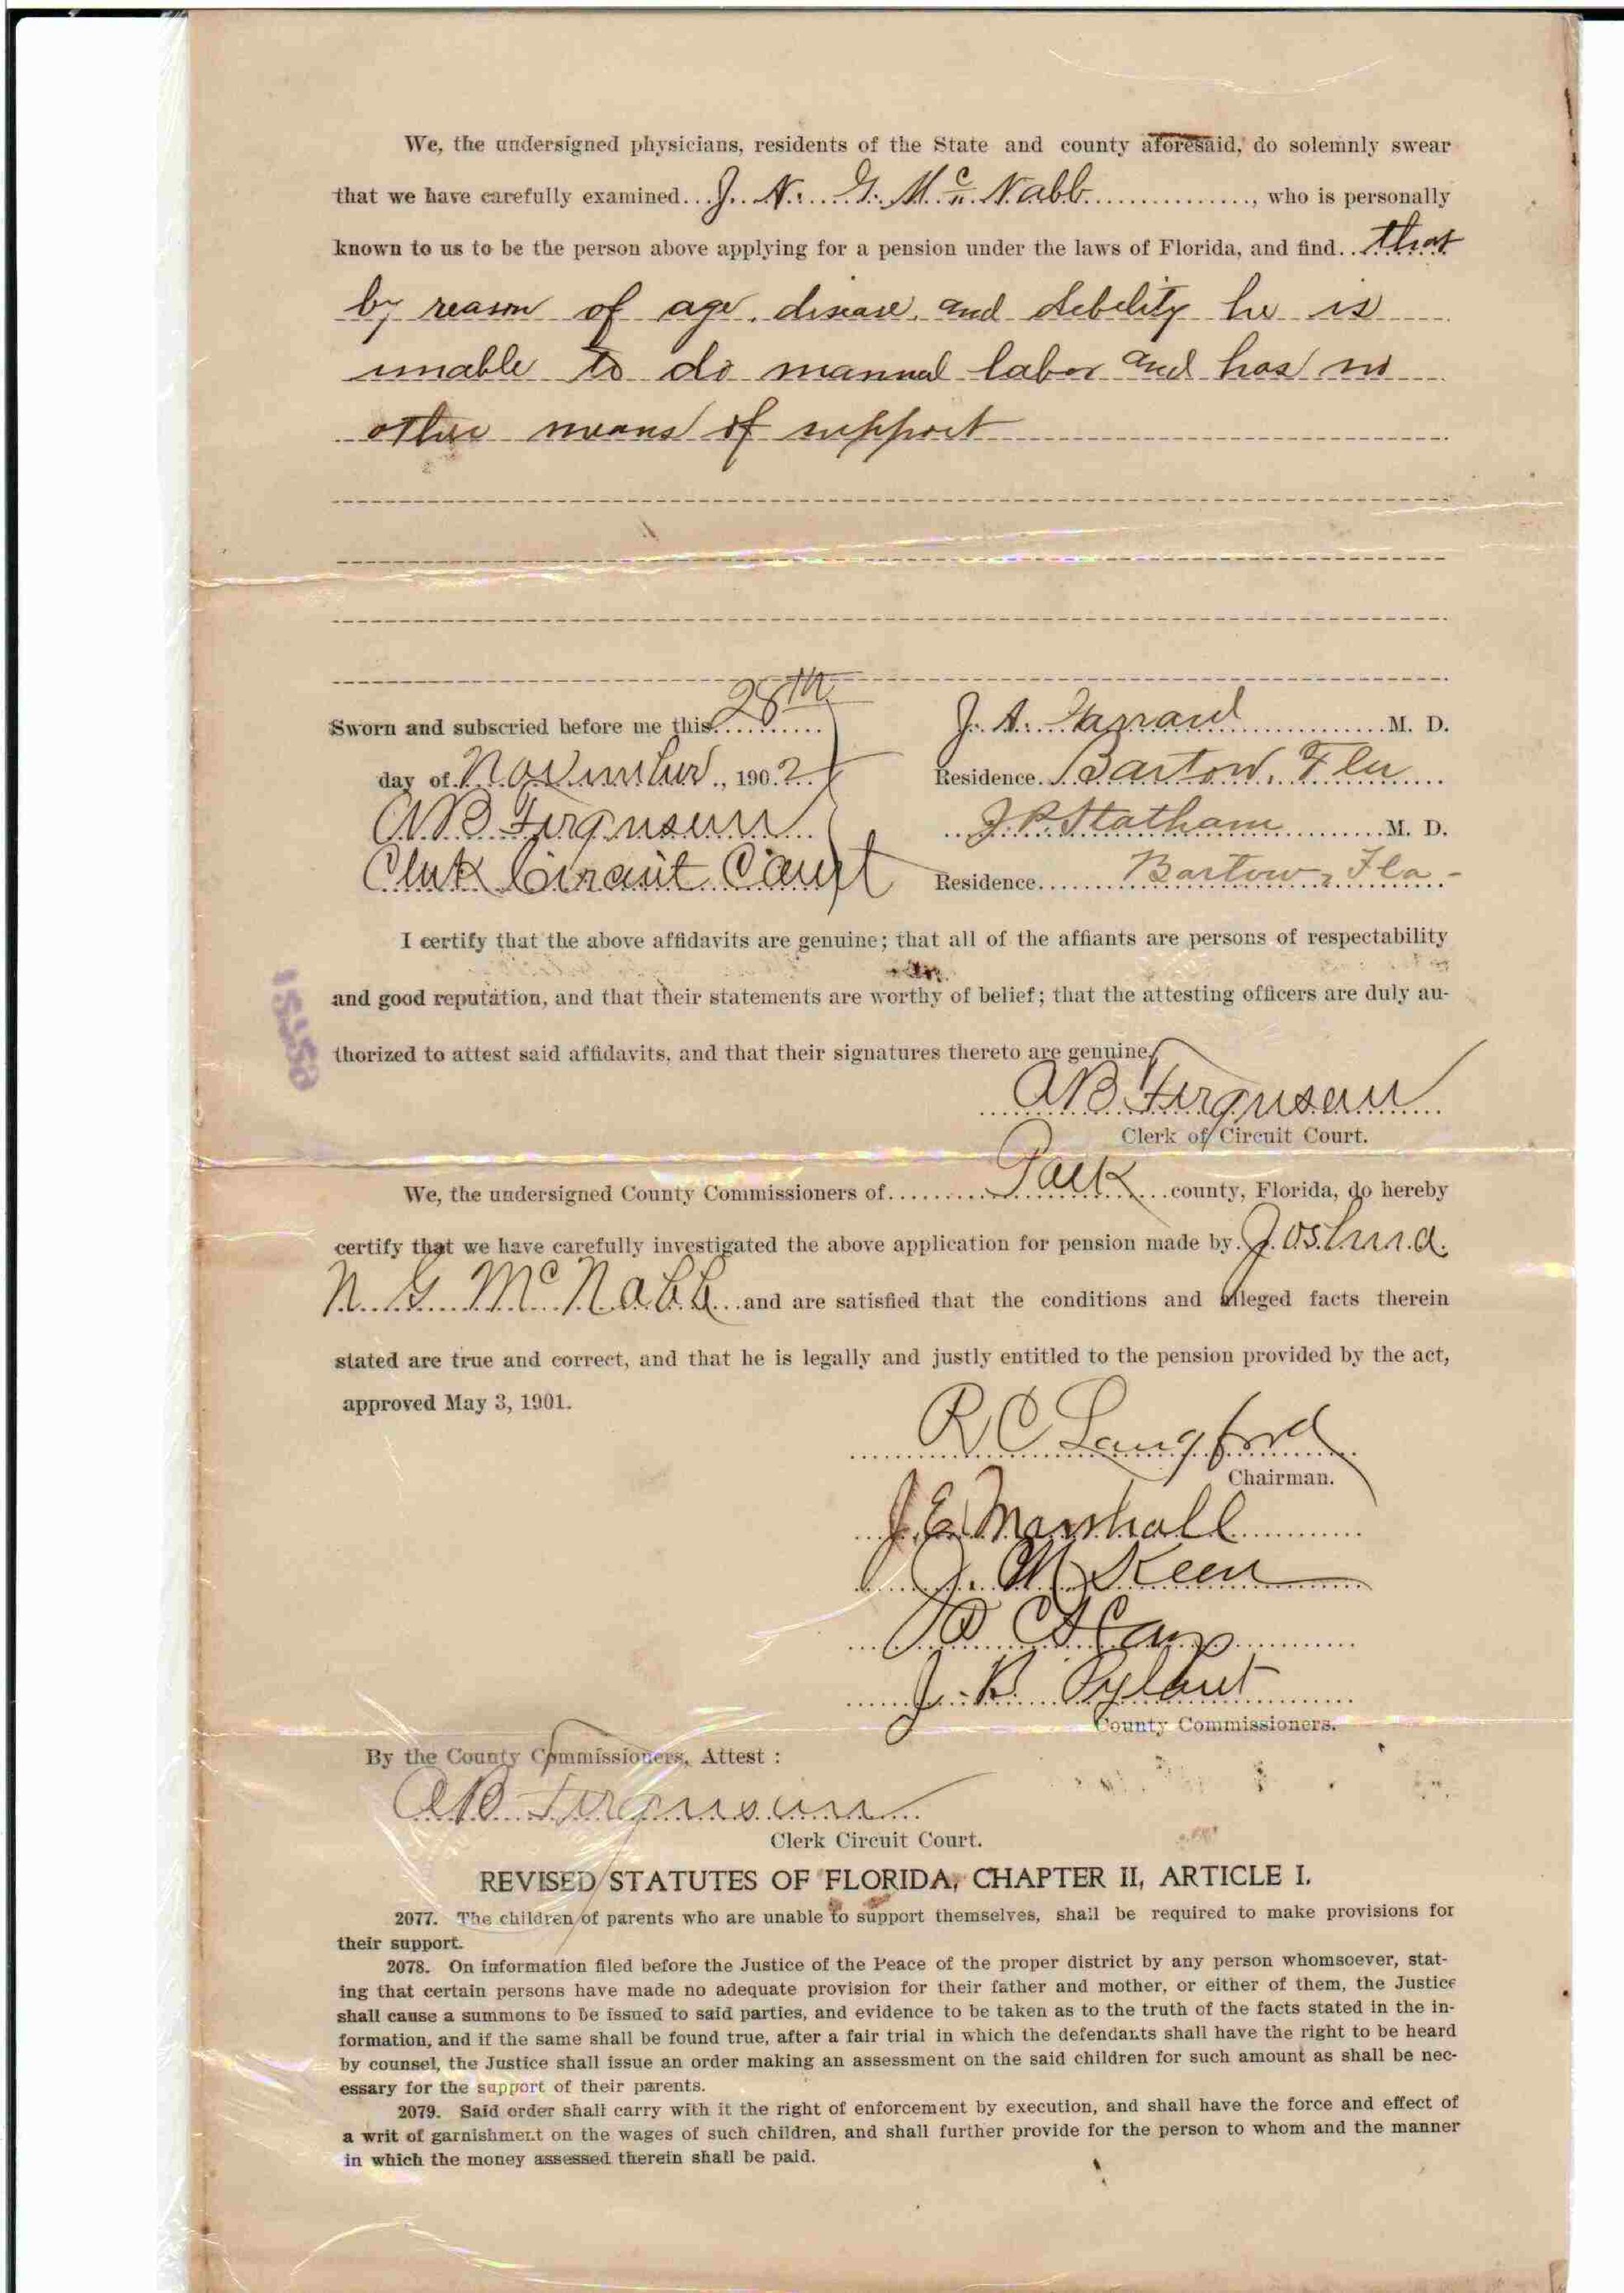 We, the undersigned physicians, residents of the State and county aforesaid, do solemnly swear
that we have carefully examined J. N. G. McNabb, who is personally
known to us to be the person above applying for a pension under the laws of Florida, and find that
by reason of age, disease, and debelity he is
unable to do manual labor and has no
other means of support
Sworn and subscried before me this 28th
J. A. Garrard M. D.
day of November, 1902
Residence Bartow, Fla
A B Ferguson
J. P. Statham M. D.
Clerk Circuit Court
Residence Bartow, Fla-
I certify that the above affidavits are genuine; that all of the affiants are persons of respectability
and good reputation, and that their statements are worthy of belief; that the attesting officers are duly au-
thorized to attest said affidavits, and that their signatures thereto are genuine.
A B Ferguson
Clerk of Circuit Court.
We, the undersigned County Commissioners of Polk county, Florida, do hereby
certify that we have carefully investigated the above application for pension made by Joshua
N. G. McNabb and are satisfied that the conditions and alleged facts therein
stated are true and correct, and that he is legally and justly entitled to the pension provided by the act,
approved May 3, 1901.
R C Langford
Chairman.
J. E. Marshall
J. M. Keen
J. R. Pylant
County Commissioners.
By the County Commissioners, Attest :
A B Ferguson
Clerk Circuit Court.
REVISED STATUTES OF FLORIDA, CHAPTER II, ARTICLE I.
2077. The children of parents who are unable to support themselves, shall be required to make provisions for
their support.
2078. On information filed before the Justice of the Peace of the proper district by any person whomsoever, stat-
ing that certain persons have made no adequate provision for their father and mother, or either of them, the Justice
shall cause a summons to be issued to said parties, and evidence to be taken as to the truth of the facts stated in the in-
formation, and if the same shall be found true, after a fair trial in which the defendants shall have the right to be heard
by counsel, the Justice shall issue an order making an assessment on the said children for such amount as shall be nec-
essary for the support of their parents.
2079. Said order shall carry with it the right of enforcement by execution, and shall have the force and effect of
a writ of garnishment on the wages of such children, and shall further provide for the person to whom and the manner
in which the money assessed therein shall be paid.